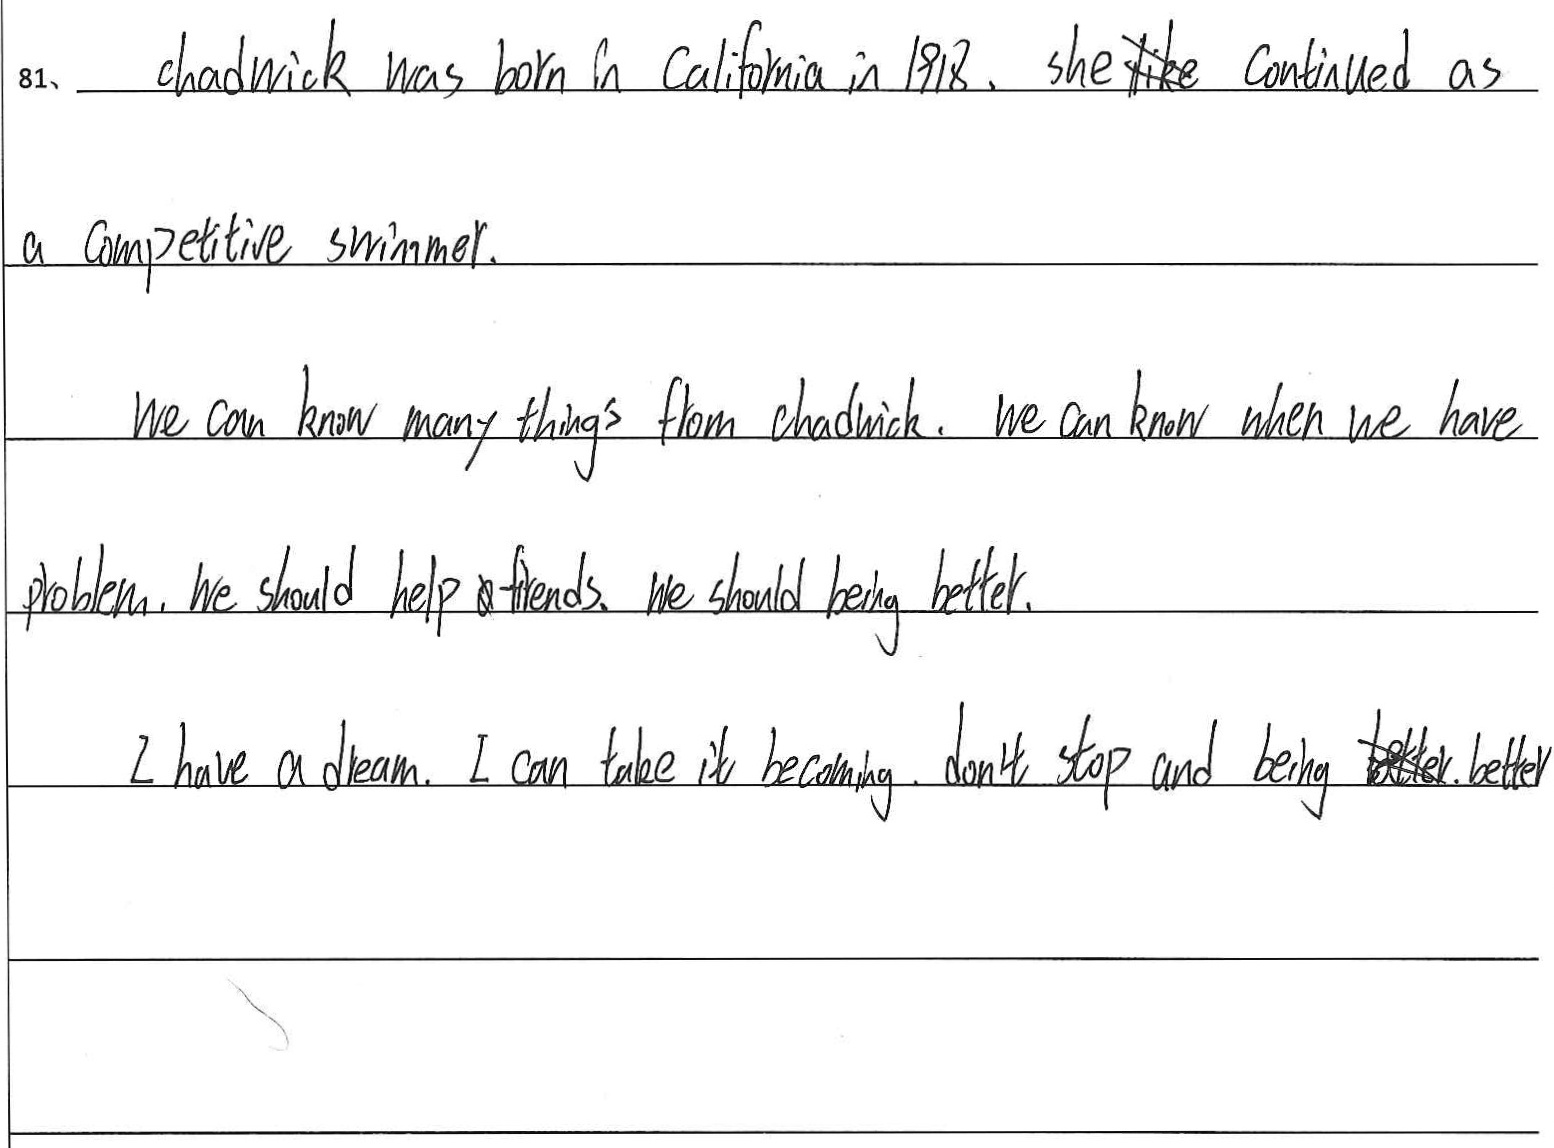 81、 chadwick was born in California in 1918. she continued as
a competitive swimmer.
We can know many things from chadwick. We can know when we have
problem. We should help friends. We should being better.
I have a dream. I can take it becoming. don't stop and being better